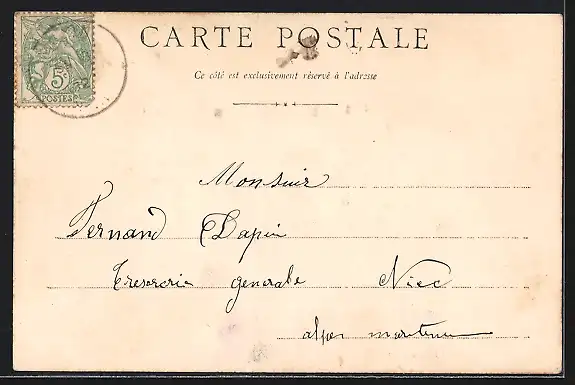 5c
POSTES
CARTE POSTALE
Ce côté est exclusivement réservé à l'adresse
Monsieur
Fernand Dapin
Tresorerie generale Nice
alpes maritimes